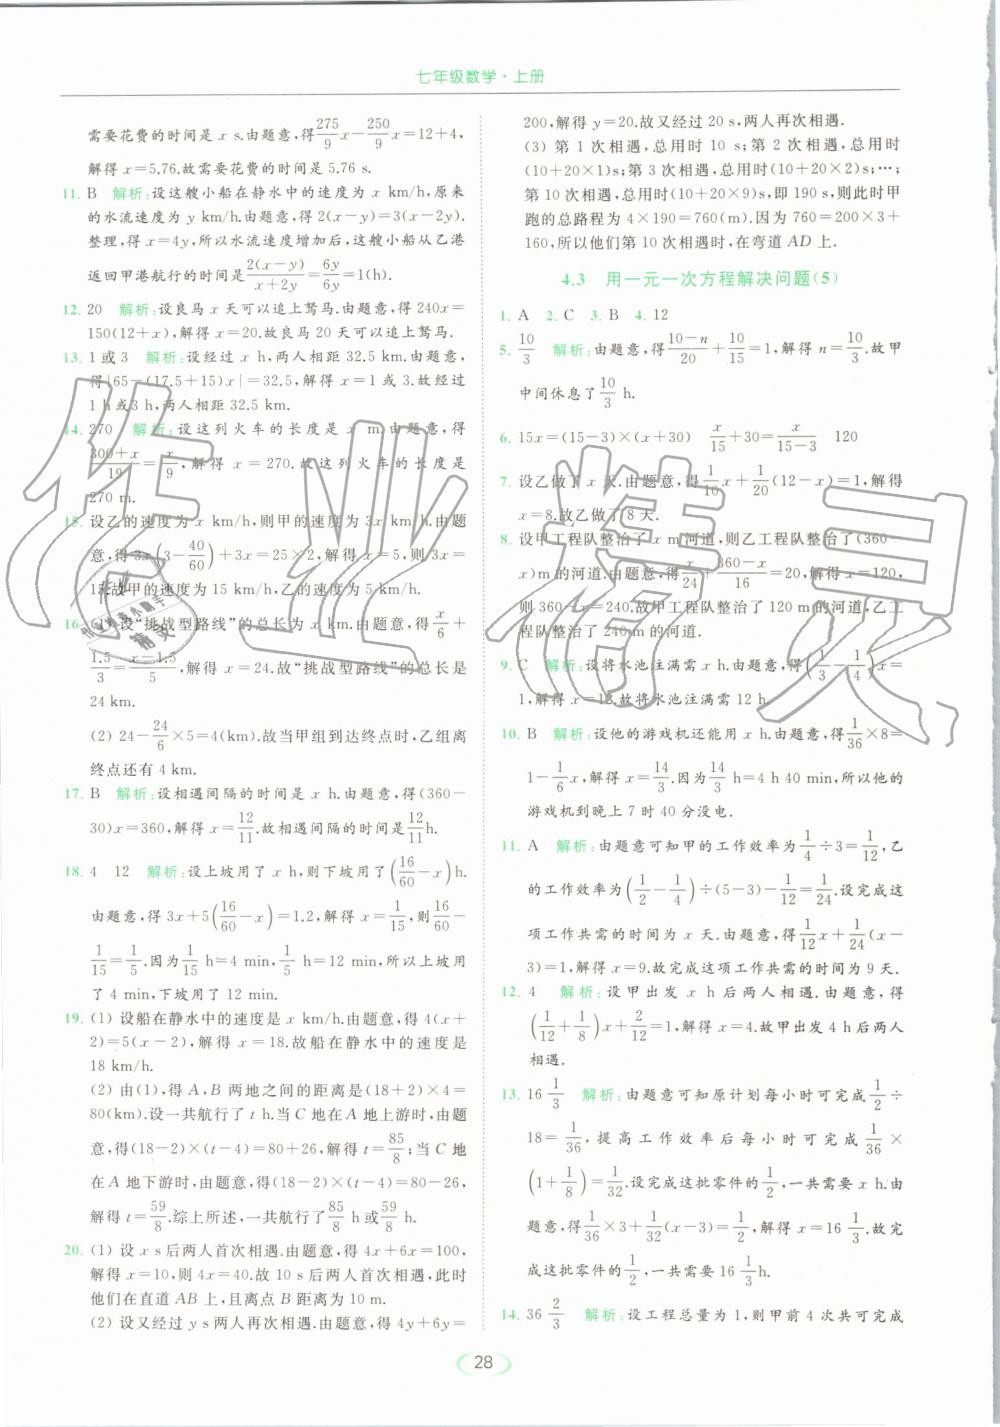 七年级数学·上册
需要花费的时间是 x s.由题意,得275/9x−250/9x=12+4,
解得 x=5.76.故需要花费的时间是 5.76 s.
11. B 解析:设这艘小船在静水中的速度为 x km/h,原来
的水流速度为 y km/h.由题意,得 2(x−y)=3(x−2y).
整理,得 x=4y,所以水流速度增加后,这艘小船从乙港
返回甲港航行的时间是2(x−y)/(x+2y)=6y/6y=1(h).
12. 20 解析:设良马 x 天可以追上驽马.由题意,得 240x=
150(12+x),解得 x=20.故良马 20 天可以追上驽马.
13. 1 或 3 解析:设经过 x h,两人相距 32.5 km.由题意,
得|65−(17.5+15)x|=32.5,解得 x=1 或 3.故经过
1 h 或 3 h,两人相距 32.5 km.
14. 270 解析:设这列火车的长度是 x m.由题意,得
(300+x)/19=x/9,解得 x=270.故这列火车的长度是
270 m.
15. 设乙的速度为 x km/h,则甲的速度为 3x km/h.由题
意,得 3x(3−40/60)+3x=25×2,解得 x=5,则 3x=
15.故甲的速度为 15 km/h,乙的速度为 5 km/h.
16. (1) 设“挑战型路线”的总长为 x km.由题意,得x/6+
1.5/3=(x−1.5)/5,解得 x=24.故“挑战型路线”的总长是
24 km.
(2) 24−24/6×5=4(km).故当甲组到达终点时,乙组离
终点还有 4 km.
17. B 解析:设相遇间隔的时间是 x h.由题意,得(360−
30)x=360,解得 x=12/11.故相遇间隔的时间是12/11h.
18. 4 12 解析:设上坡用了 x h,则下坡用了(16/60−x)h.
由题意,得 3x+5(16/60−x)=1.2,解得 x=1/15,则16/60−
1/15=1/5.因为1/15 h=4 min,1/5 h=12 min,所以上坡用
了 4 min,下坡用了 12 min.
19. (1) 设船在静水中的速度是 x km/h.由题意,得 4(x+
2)=5(x−2),解得 x=18.故船在静水中的速度是
18 km/h.
(2) 由(1),得 A,B 两地之间的距离是(18+2)×4=
80(km).设一共航行了 t h.当 C 地在 A 地上游时,由题
意,得(18−2)×(t−4)=80+26,解得 t=85/8;当 C 地
在 A 地下游时,由题意,得(18−2)×(t−4)=80−26,
解得 t=59/8.综上所述,一共航行了85/8 h 或59/8 h.
20. (1) 设 x s 后两人首次相遇.由题意,得 4x+6x=100,
解得 x=10,则 4x=40.故 10 s 后两人首次相遇,此时
他们在直道 AB 上,且离点 B 10 m.
(2) 设又经过 y s 两人再次相遇.由题意,得 4y+6y=
200,解得 y=20.故又经过 20 s,两人再次相遇.
(3) 第 1 次相遇,总用时 10 s;第 2 次相遇,总用时
(10+20×1)s;第 3 次相遇,总用时(10+20×2)s;…;
第 10 次相遇,总用时(10+20×9)s,即 190 s,则此时甲
跑的总路程为 4×190=760(m).因为 760=200×3+
160,所以他们第 10 次相遇时,在弯道 AD 上.
4.3 用一元一次方程解决问题(5)
1. A 2. C 3. B 4. 12
5. 10/3 解析:由题意,得(10−n)/20+10/15=1,解得 n=10/3.故甲
中间休息了10/3 h.
6. 15x=(15−3)×(x+30) x/15+30=x/(15−3) 120
7. 设乙做了 x 天.由题意,得1/10x+1/20(12−x)=1,解得
x=8.故乙做了 8 天.
8. 设甲工程队整治了 x m 河道,则乙工程队整治了(360−
x)m 的河道.由题意,得x/24+(360−x)/16=20,解得 x=120,
则 360−x=240.故甲工程队整治了 120 m 的河道,乙工
程队整治了 240 m 的河道.
9. C 解析:设将水池注满需 x h.由题意,得(1/3−1/4)x=
1,解得 x=12.故将水池注满需 12 h.
10. B 解析:设他的游戏机还能用 x h.由题意,得1/36×8=
1−1/6x,解得 x=14/3.因为14/3 h=4 h 40 min,所以他的
游戏机到晚上 7 时 40 分没电.
11. A 解析:由题意可知甲的工作效率为1/4÷3=1/12,乙
的工作效率为(1/2−1/4)÷(5−3)−1/12=1/24.设完成这
项工作共需的时间为 x 天.由题意,得1/12x+1/24(x−
3)=1,解得 x=9.故完成这项工作共需的时间为 9 天.
12. 4 解析:设甲出发 x h 后两人相遇.由题意,得
(1/12+1/8)x+2/12=1,解得 x=4.故甲出发 4 h 后两人
相遇.
13. 16 1/3 解析:由题意可知原计划每小时可完成1/2÷
18=1/36,提高工作效率后每小时可完成1/36×
(1+1/8)=1/32.设完成这批零件的1/2,一共需要 x h.由
题意,得1/36×3+1/32(x−3)=1/2,解得 x=16 1/3.故完
成这批零件的1/2,一共需要 16 1/3h.
14. 36 2/3 解析:设工程总量为 1,则甲前 4 次共可完成
28
作业精灵